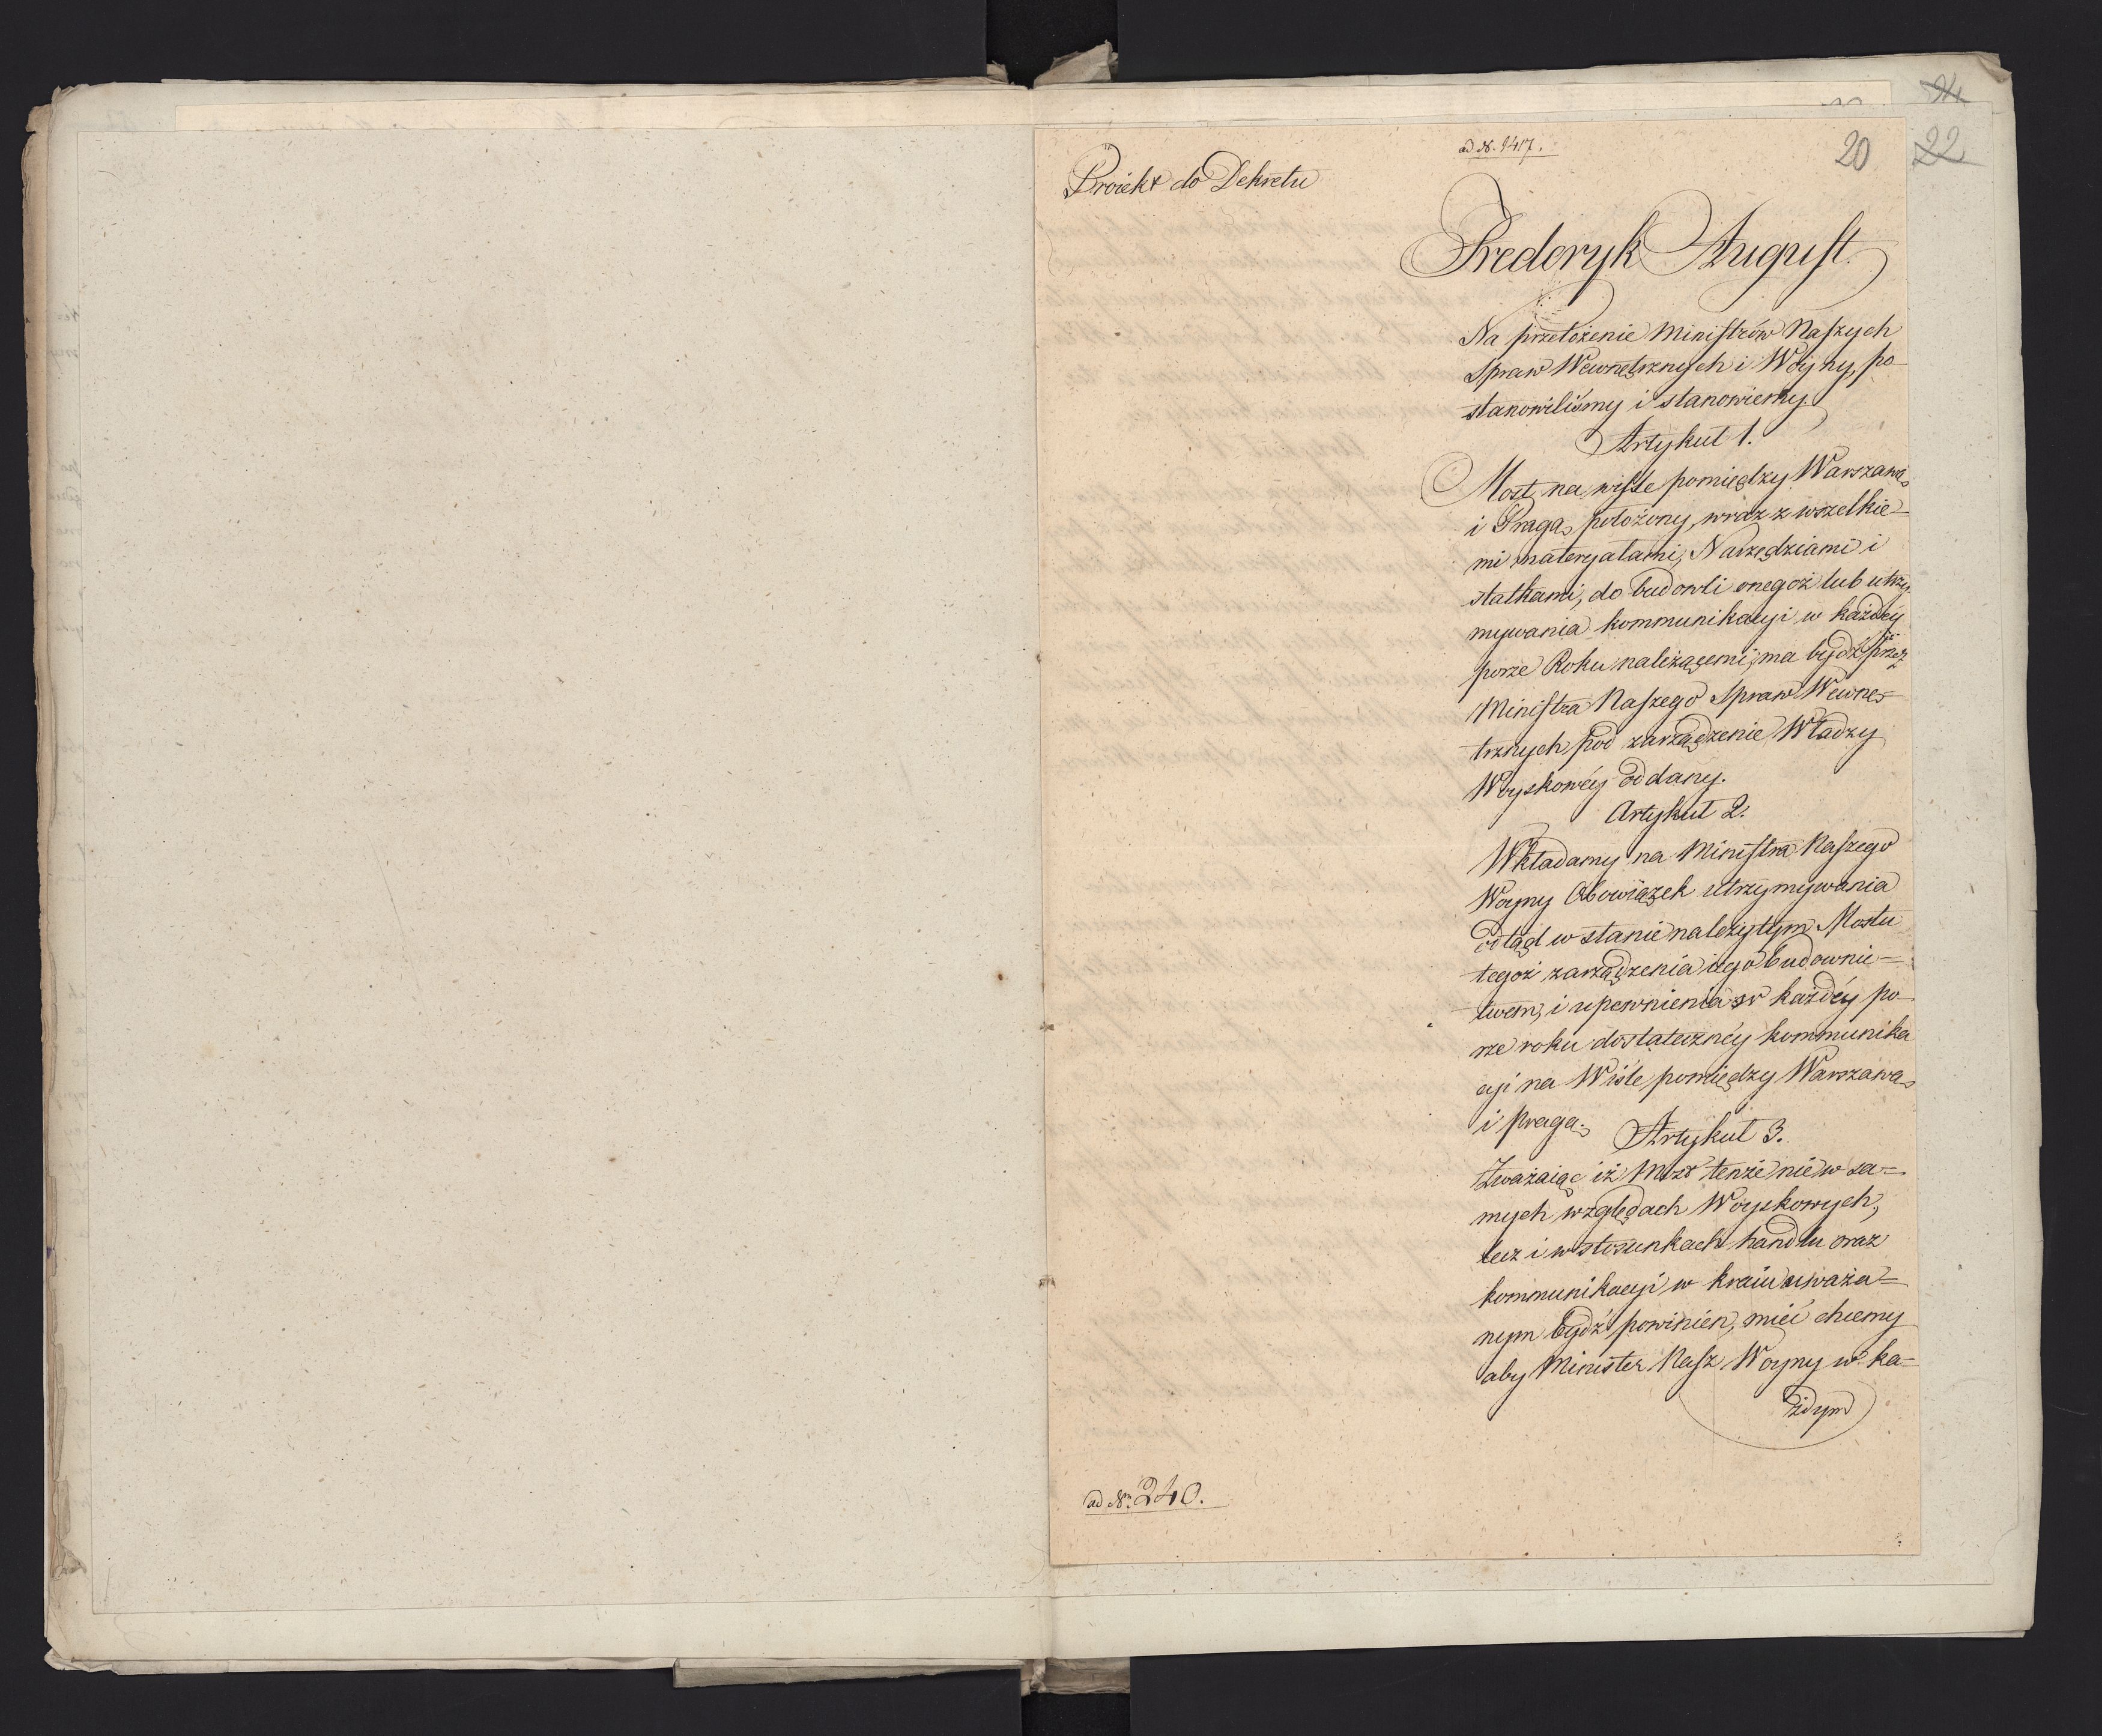 24
22
20
ad N. 9417.
Proiekt do Dekretu
Frederyk August.
Na przełożenie Ministrów Naszych
Spraw Wewnętrznych i Woyny, po-
stanowiliśmy i stanowiemy.
Artykuł 1.
Most na wiśle pomiędzy Warszawą
i Pragą położony, wraz z wszelkie-
mi materyałami, Narzędziami i
statkami, do budowli onegoż lub utrzy-
mywania kommunikacyi w każdéy
porze Roku należącemi, ma bydź przez
Ministra Naszego Spraw Wewnę-
trznych pod zarządzenie Władzy
Woyskowéy oddany.
Artykuł 2.
Wkładamy na Ministra Naszego
Woyny Obowiązek utrzymywania
odtąd w stanie należytym Mostu
tegoż zarządzenia iego budownic=
twem, i upewnienia w każdéy po-
rze roku dostatecznéy kommunika
cyi na Wiśle pomiędzy Warszawą
i Pragą.
Artykuł 3.
Zważaiąc iż Most tenże nie w sa=
mych względach Woyskowych,
lecz i w stosunkach handlu oraz
kommunikacyi w kraiu uważa=
nym bydź powinien, mieć chcemy
aby Minister Nasz Woyny w ka=
żdym
ad Nm 240.